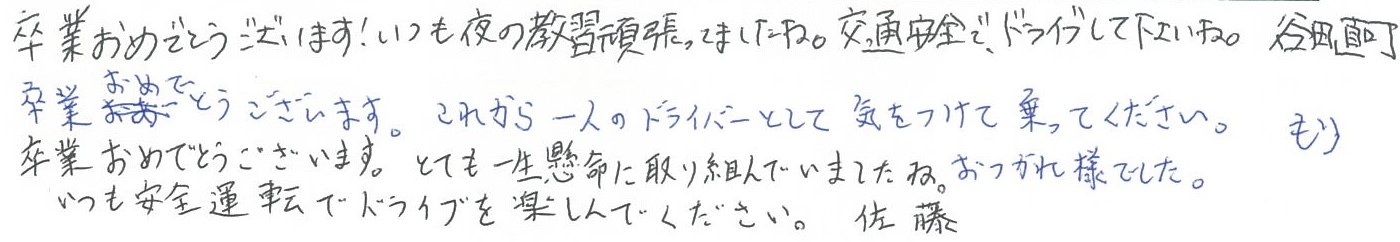 卒業おめでとうございます!いつも夜の教習頑張ってましたね。交通安全で、ドライブして下さいね。 谷田直町
卒業おめでとうございます。これから一人のドライバーとして気をつけて乗ってください。 もり
卒業おめでとうございます。とても一生懸命に取り組んでいましたね。おつかれ様でした。
いつも安全運転でドライブを楽しんでください。 佐藤